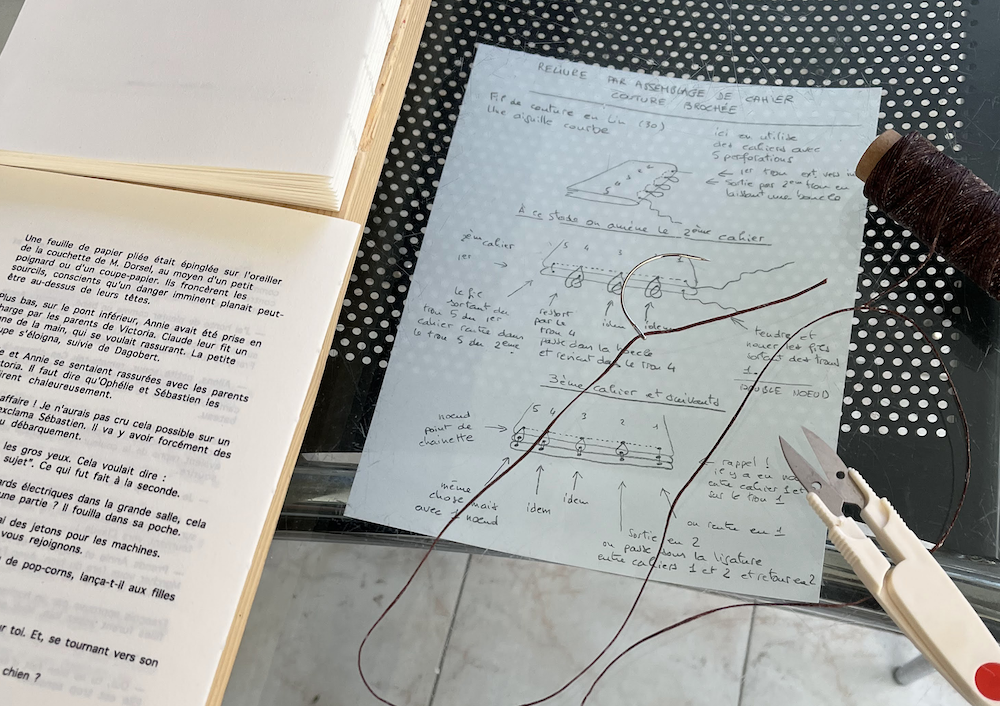 Une feuille de papier pliée était épinglée sur l'oreiller
de la couchette de M. Dorsel, au moyen d'un petit
poignard ou d'un coupe-papier. Ils froncèrent les
sourcils, conscients qu'un danger imminent planait peut-
être au-dessus de leurs têtes.
Plus bas, sur le pont inférieur, Annie avait été prise en
charge par les parents de Victoria. Claude leur fit un
de la main, qui se voulait rassurant. La petite
s'éloigna, suivie de Dagobert.
et Annie se sentaient rassurées avec les parents
Il faut dire qu'Ophélie et Sébastien les
chaleureusement.
affaire ! Je n'aurais pas cru cela possible sur un
exclama Sébastien. Il va y avoir forcément des
débarquement.
les gros yeux. Cela voulait dire :
sujet". Ce qui fut fait à la seconde.
électriques dans la grande salle, cela
une partie ? Il fouilla dans sa poche.
des jetons pour les machines.
vous rejoignons.
de pop-corns, lança-t-il aux filles
toi. Et, se tournant vers son
chien ?
RELIURE PAR ASSEMBLAGE DE CAHIER
COUTURE BROCHÉE
Fil de couture en Lin (30)
Une aiguille courbe
ici on utilise
des cahiers avec
5 perforations
1er trou ext. vers
sortie par 2ème trou en
laissant une boucle
À ce stade on amène le 2ème cahier
2ème cahier
1er
5 4 3
le fil
sortant du
trou 5 du 1er
cahier rentre dans
le trou 5 du 2ème
ressort
par le
trou 4
passe dans la boucle
et revient dans le trou 4
idem
idem
tendre et
nouer les fils
sortant des trous
1
DOUBLE NOEUD
3ème cahier et suivants
5 4 3 2 1
noeud
point de
chainette
même
chose mais
avec 1 noeud
idem
idem
sortie en 2
on passe sous la ligature
entre cahiers 1 et 2 et retour en 2
on rentre en 1
rappel !
il y a un
entre cahier 1 et
sur le trou 1